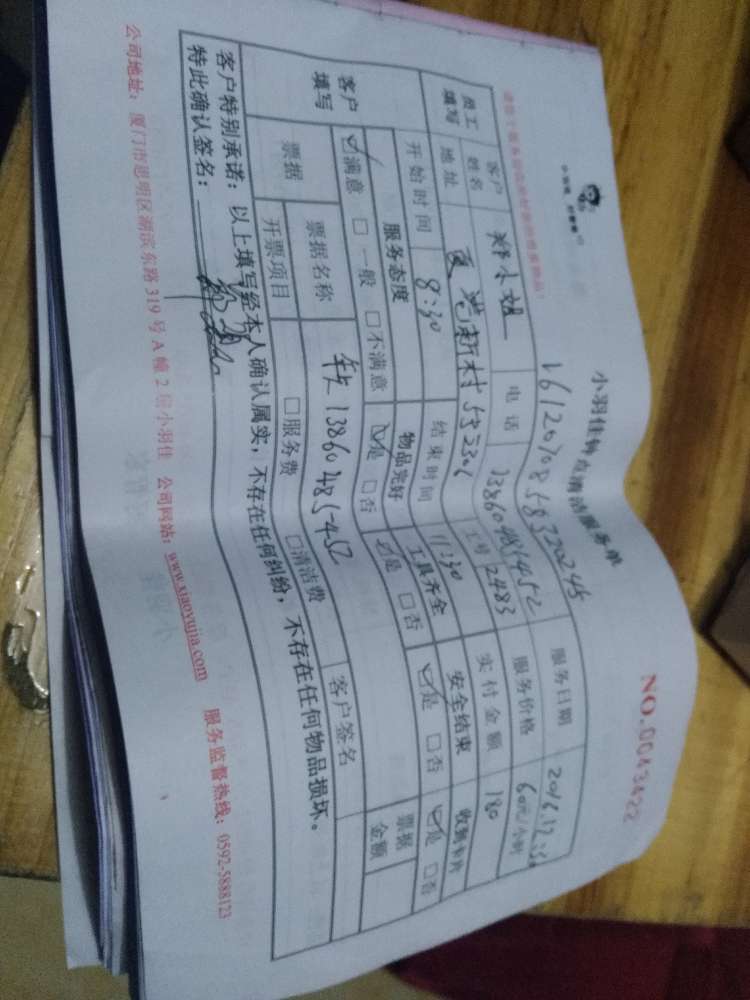 小羽佳钟点清洁服务单
NO.0043422
16120708583202245
客户姓名 郑小姐 电话 13860485452 服务日期 2016.12
员工填写 地址 夏港新村 工号 2483 服务价格 60元/小时
开始时间 8:30 结束时间 11:30 实付金额 180
客户填写 服务态度 物品完好 工具齐全 安全结束 收到卡片
☑满意 □一般 □不满意 ☑是 □否 ☑是 □否 ☑是 □否 ☑是 □否
票据 票据名称 13860485452 客户签名 票据金额
开票项目 □服务费 □清洁费
客户特别承诺:以上填写经本人确认属实,不存在任何纠纷,不存在任何物品损坏。
特此确认签名:
公司地址:厦门市思明区湖滨东路319号A幢2层小羽佳 公司网站:www.xiaoyujia.com 服务监督热线:0592-5888123